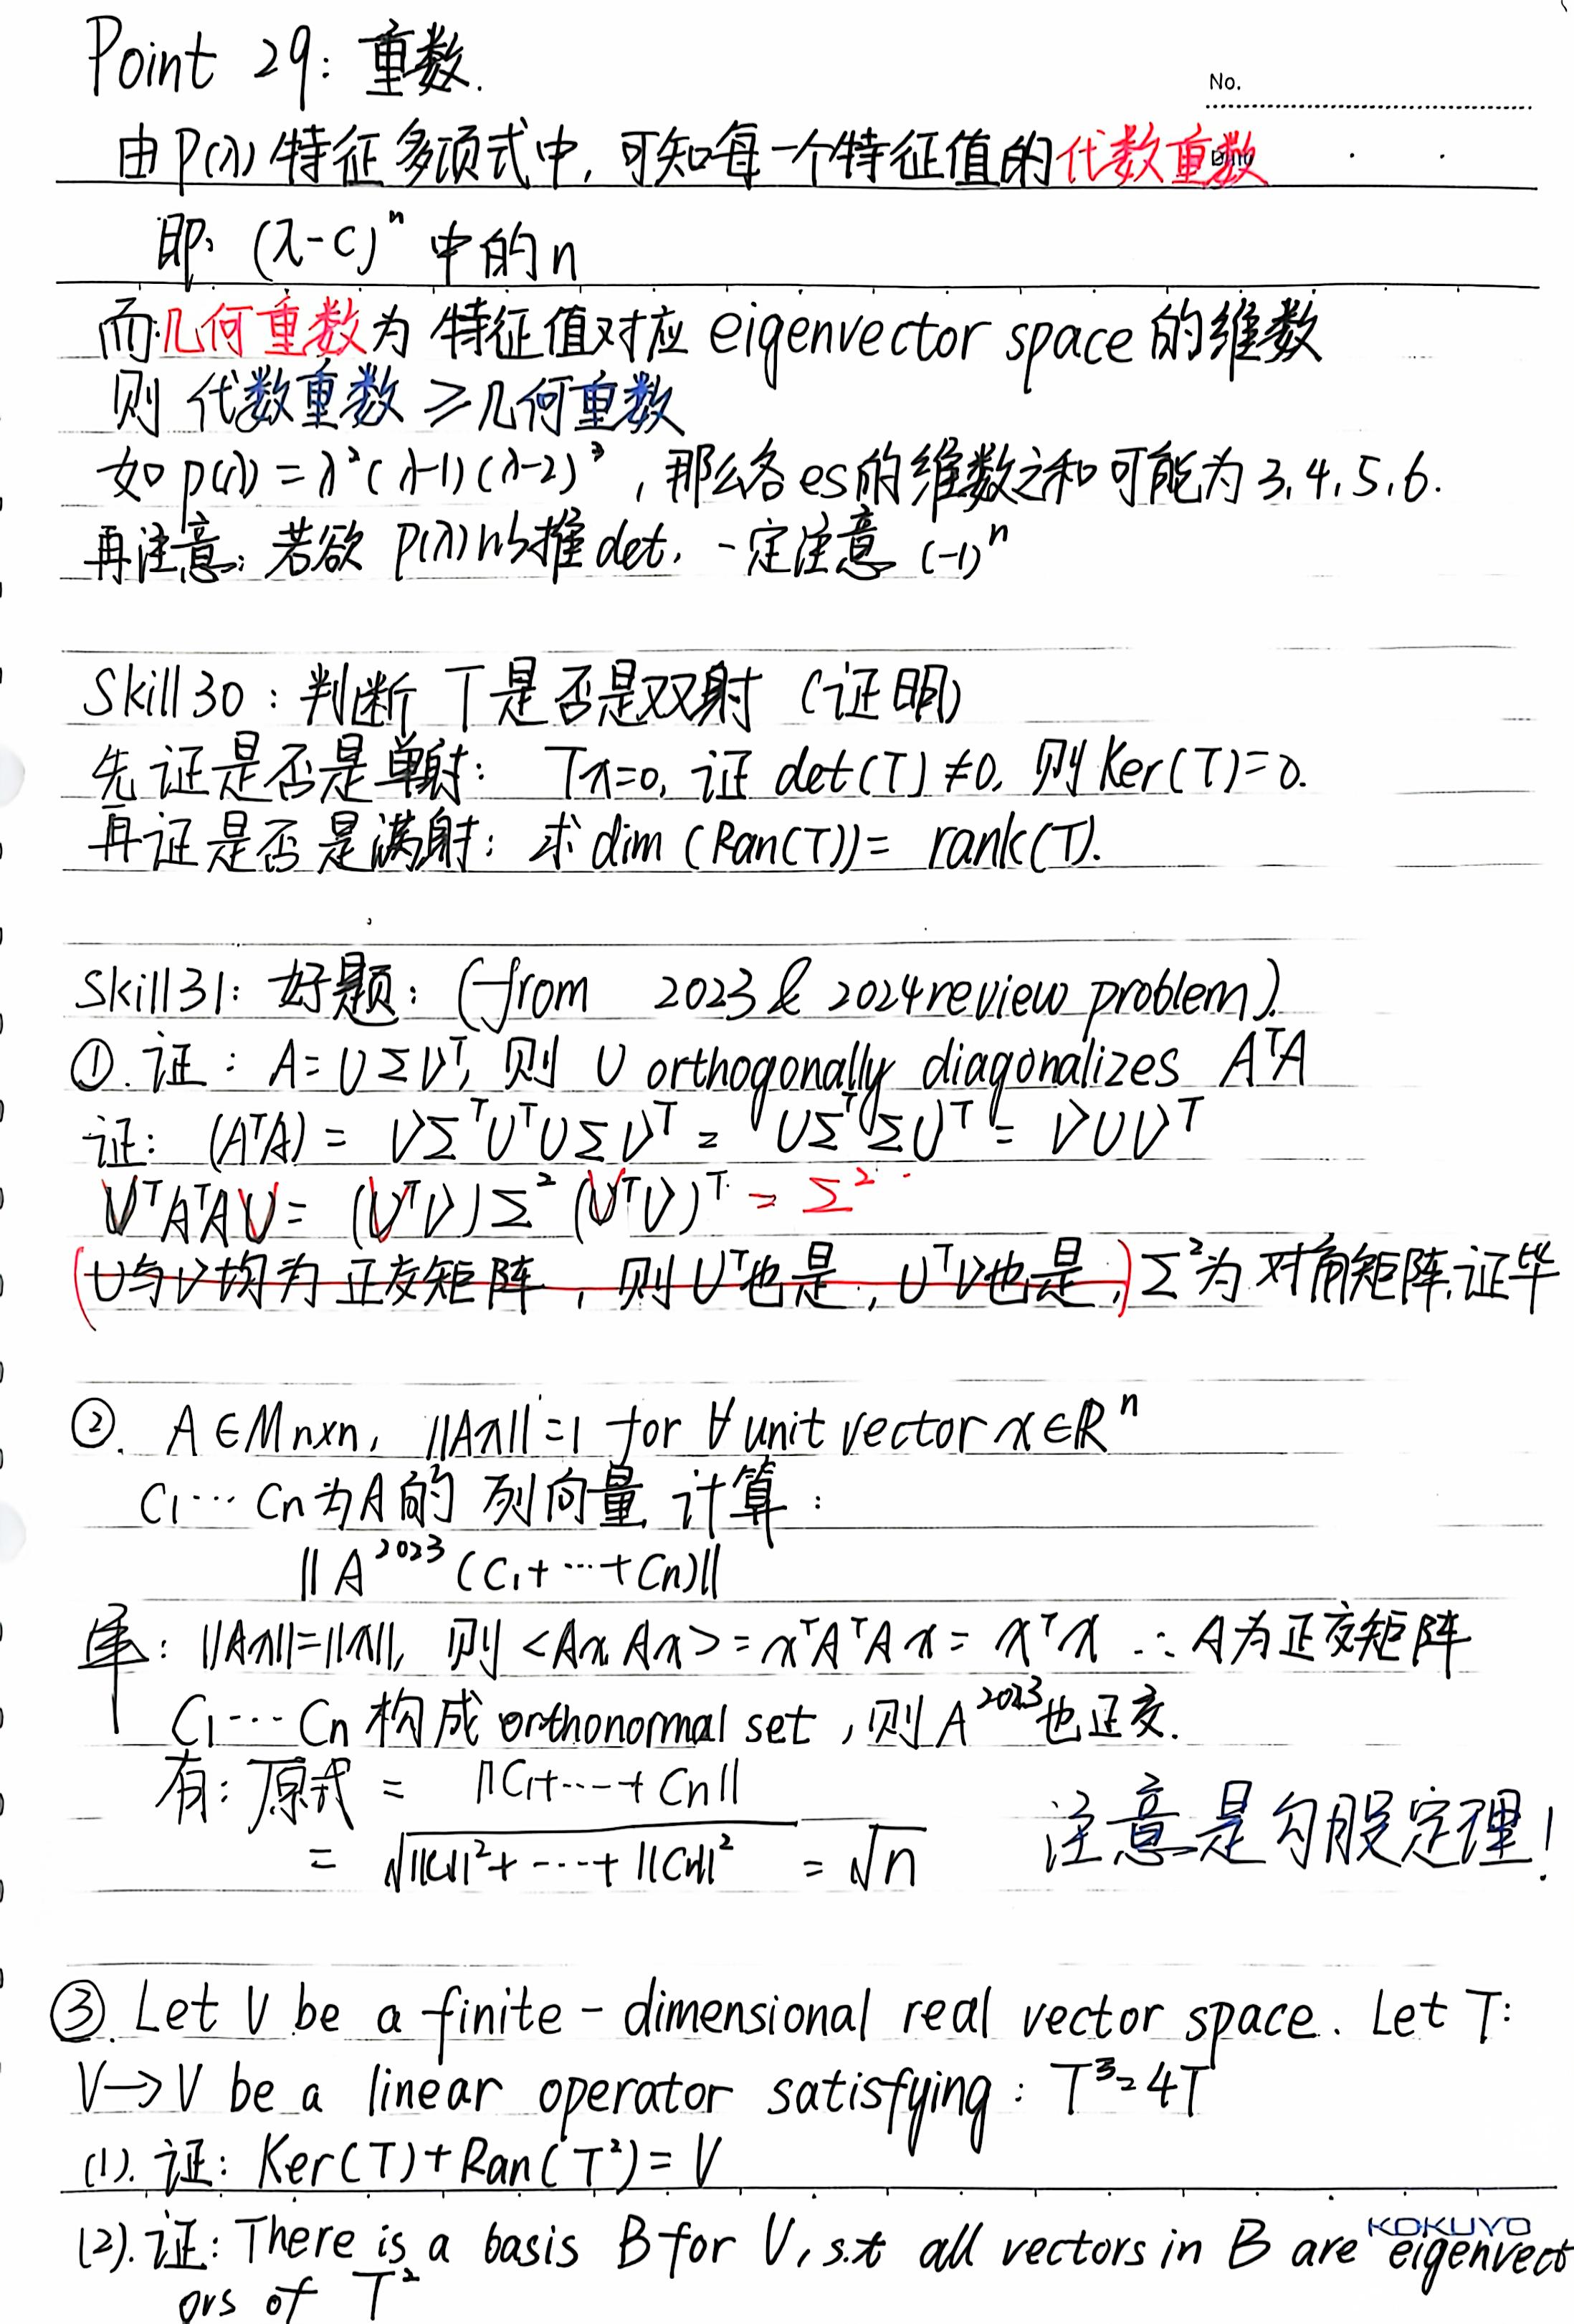 Point 29: 重数.
No.
由P(λ)特征多项式中, 可知每一个特征值的代数重数
即: (λ-C)ⁿ 中的n
而几何重数为 特征值对应 eigenvector space 的维数
则 代数重数 ≥几何重数
如 p(λ) = λ²(λ-1)(λ-2)³ , 那么各es的维数之和可能为 3.4.5.6.
再注意: 若欲 P(λ) 推det. 一定注意 (-1)ⁿ
Skill 30 : 判断 T是否是双射 (证明)
先证是否是单射: Tx=0, 证 det(T) ≠0, 则 Ker(T)=0.
再证是否是满射: 求 dim (Ran(T)) = rank(T).
Skill 31: 好题: (from 2023 & 2024 review problem).
①. 证 : A= UΣVᵀ, 则 U orthogonally diagonalizes AᵀA
证: (AᵀA) = VΣᵀUᵀUΣVᵀ = UΣᵀΣUᵀ = VUVᵀ
VᵀAᵀAV = (VᵀV)Σ²(VᵀV)ᵀ = Σ²
(U与V均为 正交矩阵 , 则 Uᵀ也是, UᵀV也是,) Σ²为 对角矩阵.证毕
②. A∈Mn×n, ||Ax||=1 for ∀ unit vector x∈ℝⁿ
C₁⋯ Cn为A的 列向量, 计算 :
|| A²⁰²³ (C₁+ ⋯ + Cn)||
解: ||Ax||=||x||, 则 <Ax, Ax> = xᵀAᵀAx = xᵀx ∴ A为正交矩阵
C₁⋯ Cn 构成 orthonormal set , 则 A²⁰²³也正交.
有: 原式 = ||C₁+⋯+ Cn||
= √||C₁||²+ ⋯ + ||Cn||² = √n 注意是勾股定理!
③. Let V be a finite-dimensional real vector space. Let T:
V→V be a linear operator satisfying : T³=4T
(1). 证: Ker(T)+Ran(T²)= V
(2). 证: There is a basis B for V, s.t all vectors in B are eigenvect
KOKUYO
ors of T²